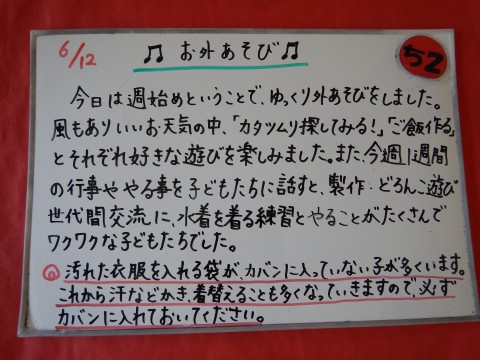 6/12 ♫ お外あそび ♫ ちこ
今日は週始めということで、ゆっくり外あそびをしました。
風もありいいお天気の中、「カタツムリ探してみる!」「ご飯作る」
とそれぞれ好きな遊びを楽しみました。また、今週1週間
の行事ややる事を子どもたちに話すと、製作・どろんこ遊び
世代間交流に、水着を着る練習とやることがたくさんで
ワクワクな子どもたちでした。
◎汚れた衣服を入れる袋が、カバンに入っていない子が多くいます。
これから汗などかき、着替えることも多くなっていきますので、必ず
カバンに入れておいてください。